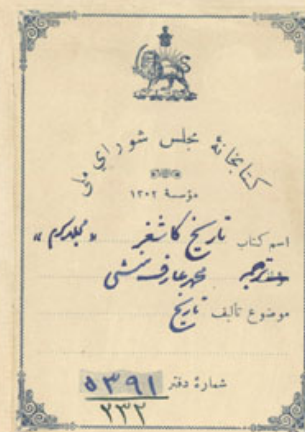 کتابخانهٔ مجلس شورای ملی
مؤسسهٔ ۱۳۰۲
اسم کتاب تاریخ کاشغر «جلد دوم»
مترجم محمد عارف منشی
موضوع تألیف تاریخ
شمارهٔ دفتر ۵۳۹۱
۲۳۲